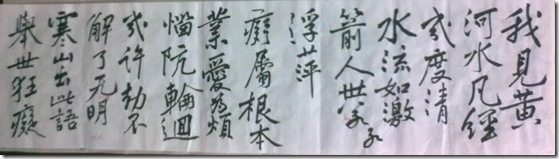 我見黃
河水凡經
幾度清
水流如激
箭人世若
浮萍
癡屬根本
業愛為煩
惱阬輪迴
幾許劫不
解了无明
寒山出此語
舉世狂癡